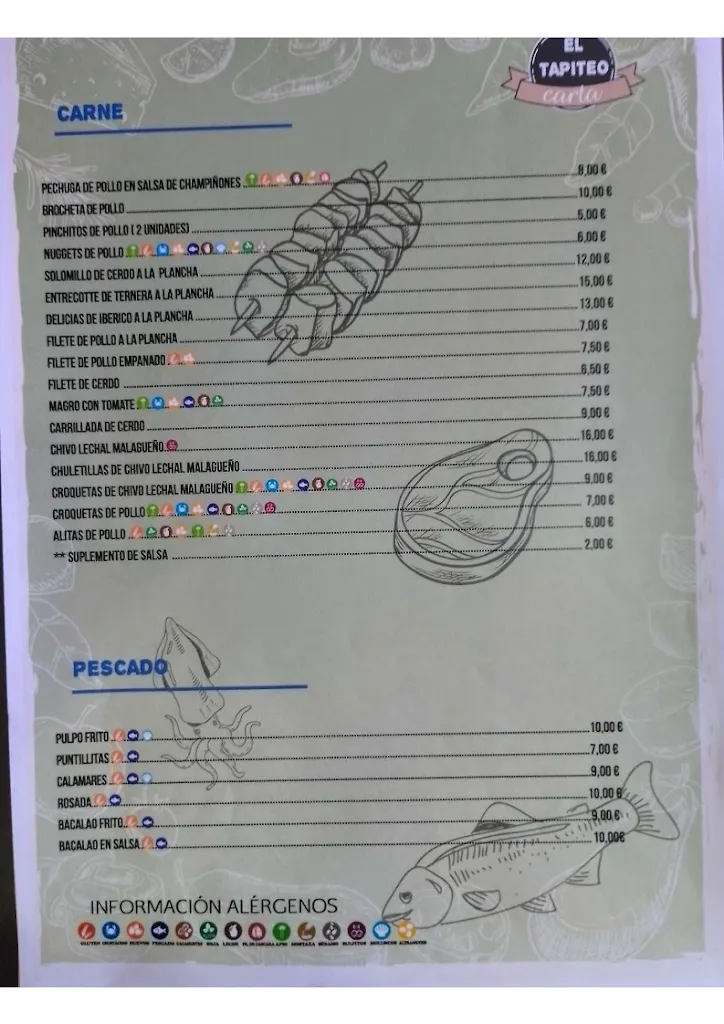 EL
TAPITEO
carta
CARNE
PECHUGA DE POLLO EN SALSA DE CHAMPIÑONES 8,00 €
BROCHETA DE POLLO 10,00 €
PINCHITOS DE POLLO ( 2 UNIDADES) 5,00 €
NUGGETS DE POLLO 6,00 €
SOLOMILLO DE CERDO A LA PLANCHA 12,00 €
ENTRECOTTE DE TERNERA A LA PLANCHA 15,00 €
DELICIAS DE IBERICO A LA PLANCHA 13,00 €
FILETE DE POLLO A LA PLANCHA 7,00 €
FILETE DE POLLO EMPANADO 7,50 €
FILETE DE CERDO 6,50 €
MAGRO CON TOMATE 7,50 €
CARRILLADA DE CERDO 9,00 €
CHIVO LECHAL MALAGUEÑO 16,00 €
CHULETILLAS DE CHIVO LECHAL MALAGUEÑO 16,00 €
CROQUETAS DE CHIVO LECHAL MALAGUEÑO 9,00 €
CROQUETAS DE POLLO 7,00 €
ALITAS DE POLLO 6,00 €
** SUPLEMENTO DE SALSA 2,00 €
PESCADO
PULPO FRITO 10,00 €
PUNTILLITAS 7,00 €
CALAMARES 9,00 €
ROSADA 10,00 €
BACALAO FRITO 9,00 €
BACALAO EN SALSA 10,00€
INFORMACIÓN ALÉRGENOS
GLUTEN CRUSTACEOS HUEVOS PESCADO CACAHUETES SOJA LECHE FR.DE CASCARA APIO MOSTAZA SÉSAMO SULFITOS MOLUSCOS ALTRAMUCES